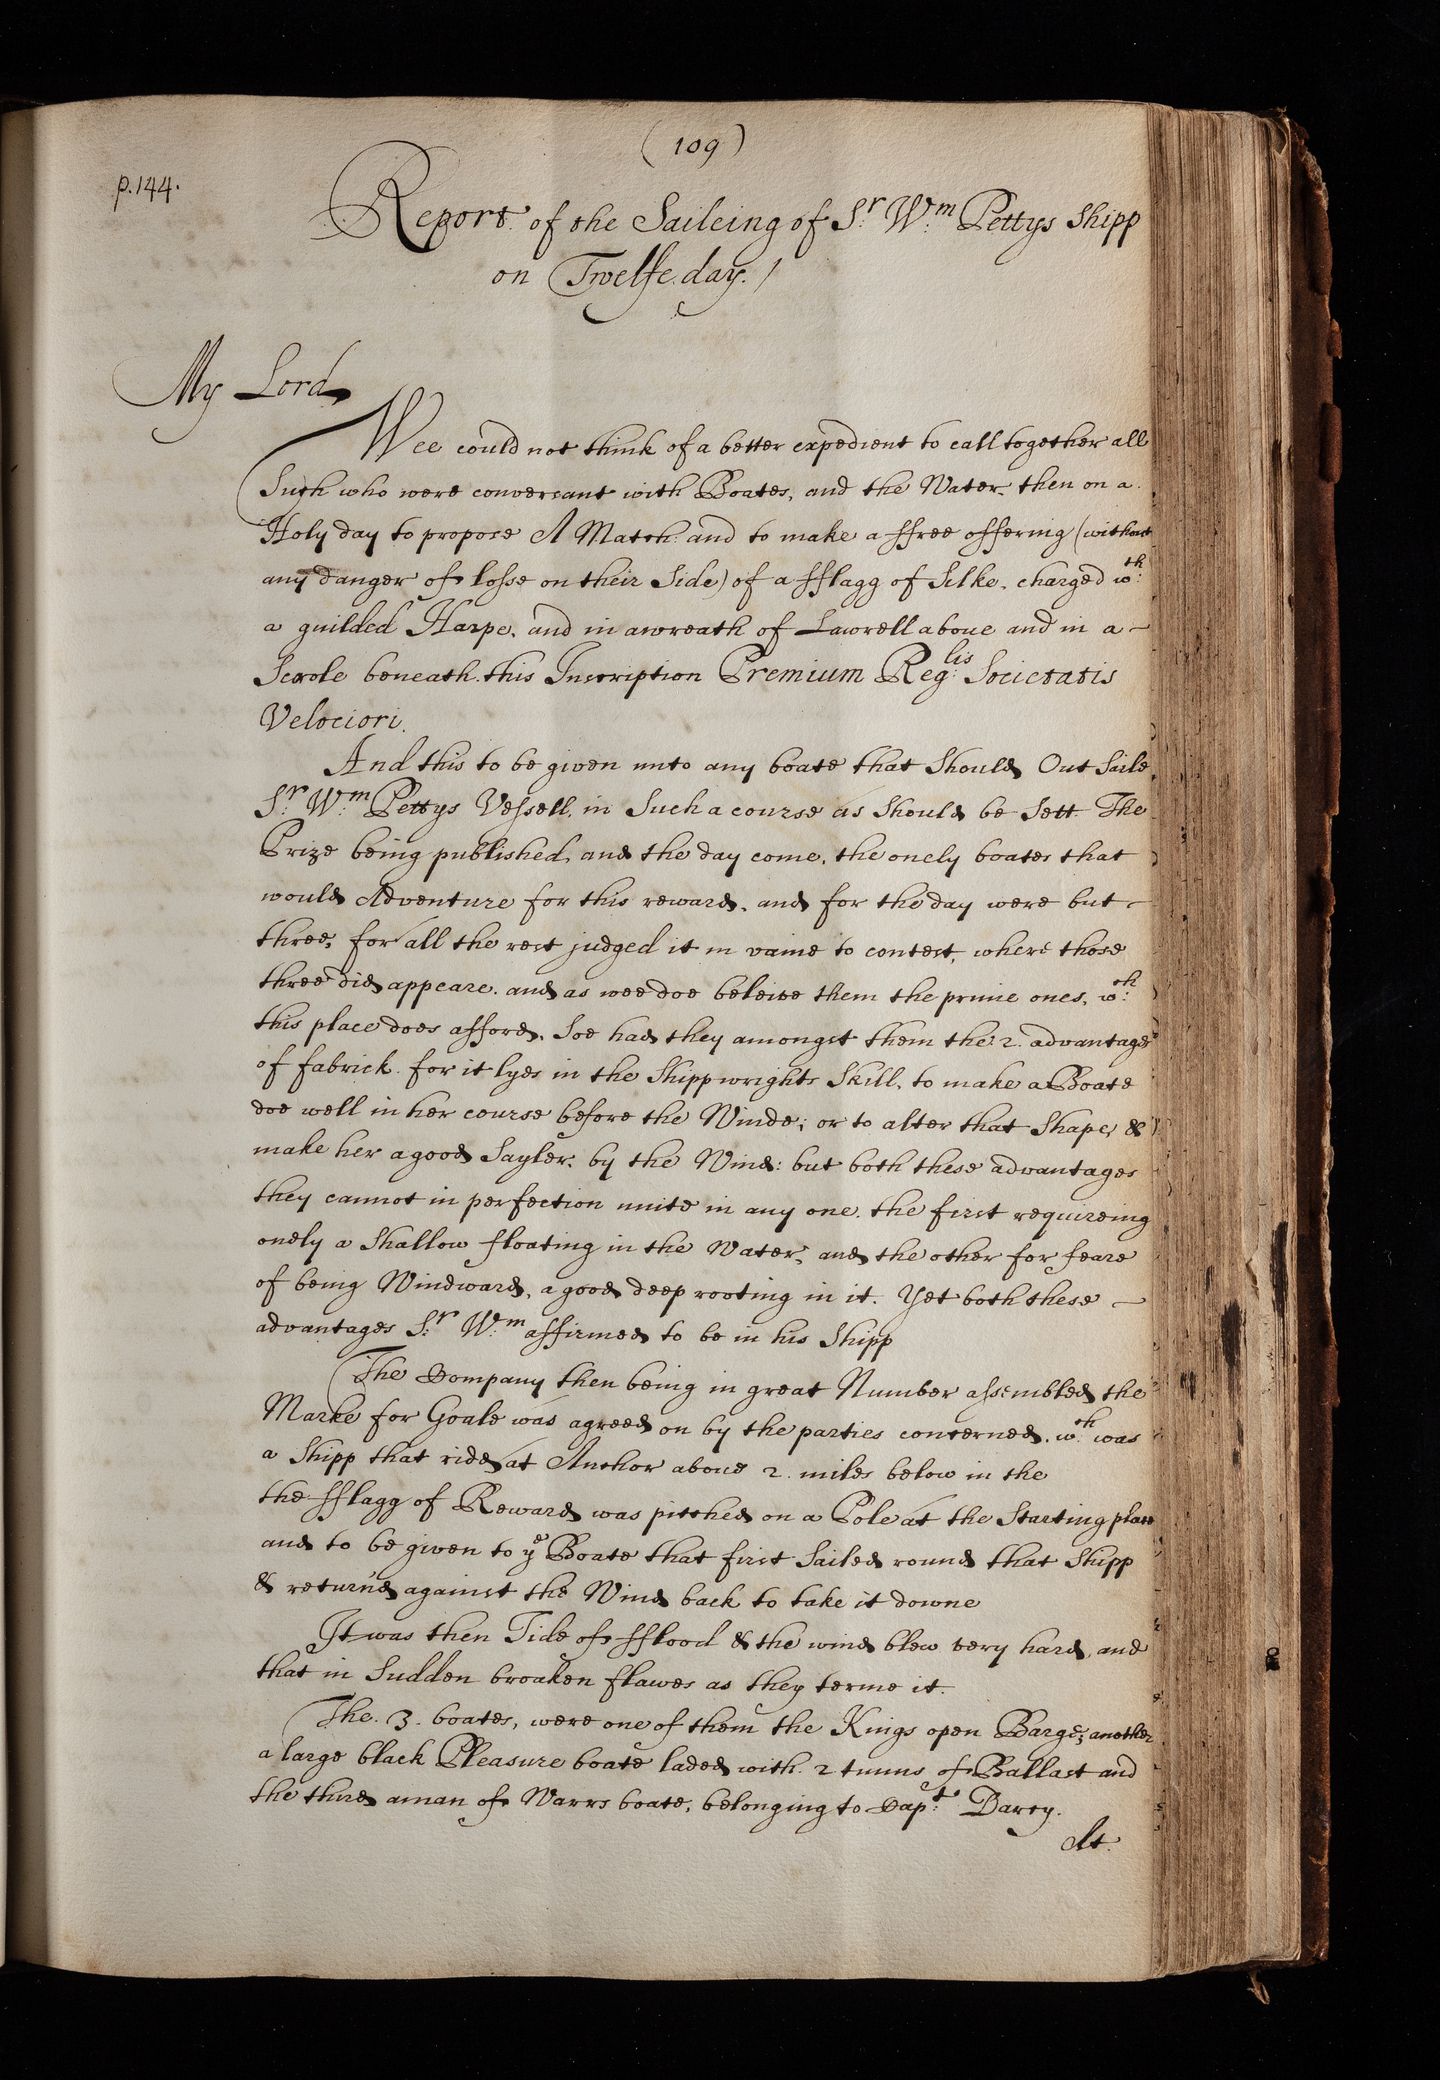 (109)
p.144.
Report of the Saileing of Sr. Wm. Pettys Shipp
on Twelfe day.
My Lord
Wee could not think of a better expedient to call together all
Such who were conversant with Boates, and the Water, then on a
Holy day to propose A Match and to make a ffree offering (without
any danger of losse on their Side) of a fflagg of Silke, charged wth:
a guilded Harpe, and in a wreath of Lawrell aboue and in a
Scrole beneath this Inscription Premium Reglis: Societatis
Velociori.
And this to be given unto any boate that Should Out Saile
Sr. Wm. Pettys Vessell, in Such a course as Should be Sett. The
Prize being published, and the day come, the onely boates that
would Adventure for this reward, and for the day were but
three, for all the rest judged it in vaine to contest, where those
three did appeare. and as wee doe beleive them the prime ones, wch:
this place does afford, Soe had they amongst them the .2. advantages
of fabrick. for it lyes in the Shippwrights Skill, to make a Boate
doe well in her course before the Winde; or to alter that Shape, &
make her a good Sayler, by the Wind: but both these advantages
they cannot in perfection unite in any one. the first requireing
onely a Shallow floating in the Water, and the other for feare
of being Windward, a good deep rooting in it. Yet both these
advantages Sr. Wm. affirmed to be in his Shipp
The Company then being in great Number assembled the
Marke for Goale was agreed on by the parties concerned, wch: was
a Shipp that rides at Anchor above 2. miles below in the
the fflagg of Reward was pitched on a Pole at the Starting place
and to be given to ye Boate that first Sailed round that Shipp
& return'd against the Wind back to take it downe
It was then Tide of fflood & the wind blew very hard, and
that in Sudden broaken flawes as they terme it.
The .3. boates, were one of them the Kings open Barge; another
a large black Pleasure boate laded with 2 tunns of Ballast and
the third a man of Warrs boate, belonging to Capt: Darcy.
At.